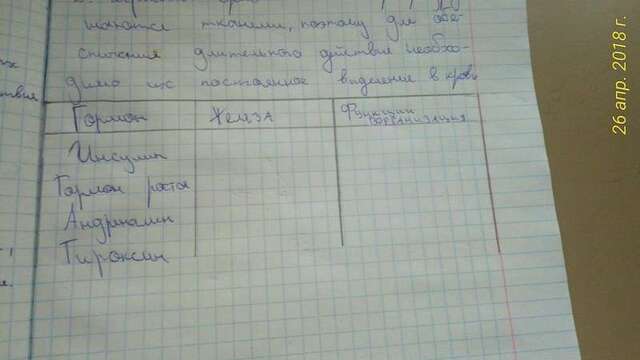 шаются тканями, поэтому для обе-
спечения длительного действия необхо-
димо их постоянное выделение в кровь
Гормон Железа Функции организация
Инсулин
Гормон роста
Андриналин
Тироксин
26 апр. 2018 г.